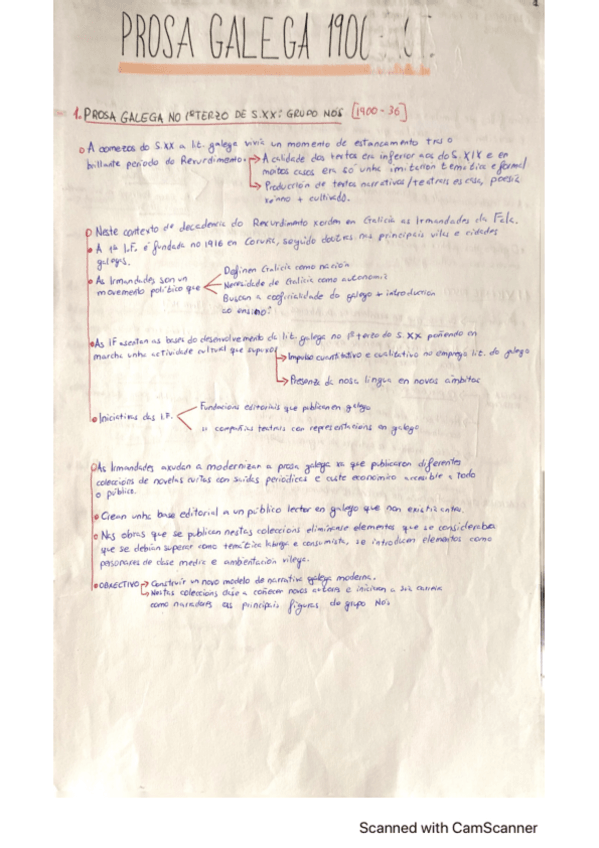 PROSA GALEGA 1900
1. PROSA GALEGA NO 1º TERZO DE S.XX: GRUPO NÓS [1900-36]
A comezos do S.XX a lit. galega vivía un momento de estancamento tras o
brillante período do Rexurdimento.
A calidade dos textos era inferior aos do S.XIX e en
moitos casos era só unha imitación temática e formal
Producción de textos narrativos/teatrais escasa, poesía
xénero + cultivado.
Neste contexto de decadencia do Rexurdimento xorden en Galicia as Irmandades da Fala.
A 1ª I.F. é fundada no 1916 en Coruña, seguido doutras nas principais vilas e cidades
galegas.
As Irmandades son un
movemento político que
Definen Galicia como nación
Necesidade de Galicia como autonomía
Buscan a cooficialidade do galego + introducción
ao ensino.
As IF asentan as bases do desenvolvemento da lit. galega no 1º terzo do S.XX poñendo en
marcha unha actividade cultural que supuxo
Impulso cuantitativo e cualitativo no emprego lit. do galego
Presenza da nosa lingua en novos ámbitos
Iniciativas das I.F.
Fundacións editoriais que publican en galego
" compañías teatrais con representacións en galego
As Irmandades axudan a modernizar a prosa galega xa que publicaron diferentes
coleccións de novelas curtas con saídas periódicas e custe económico accesible a todo
o público.
Crean unha base editorial a un público lector en galego que non existía antes.
Nas obras que se publican nestas coleccións elimínanse elementos que se consideraba
que se debían superar como temática labrega e costumista, se introducen elementos como
personaxes de clase media e ambientación vilega.
OBXECTIVO
Construír un novo modelo de narrativa galega moderna.
Nestas coleccións danse a coñecer novos autores e inician a súa carreira
como narradores as principais figuras do grupo Nós
Scanned with CamScanner